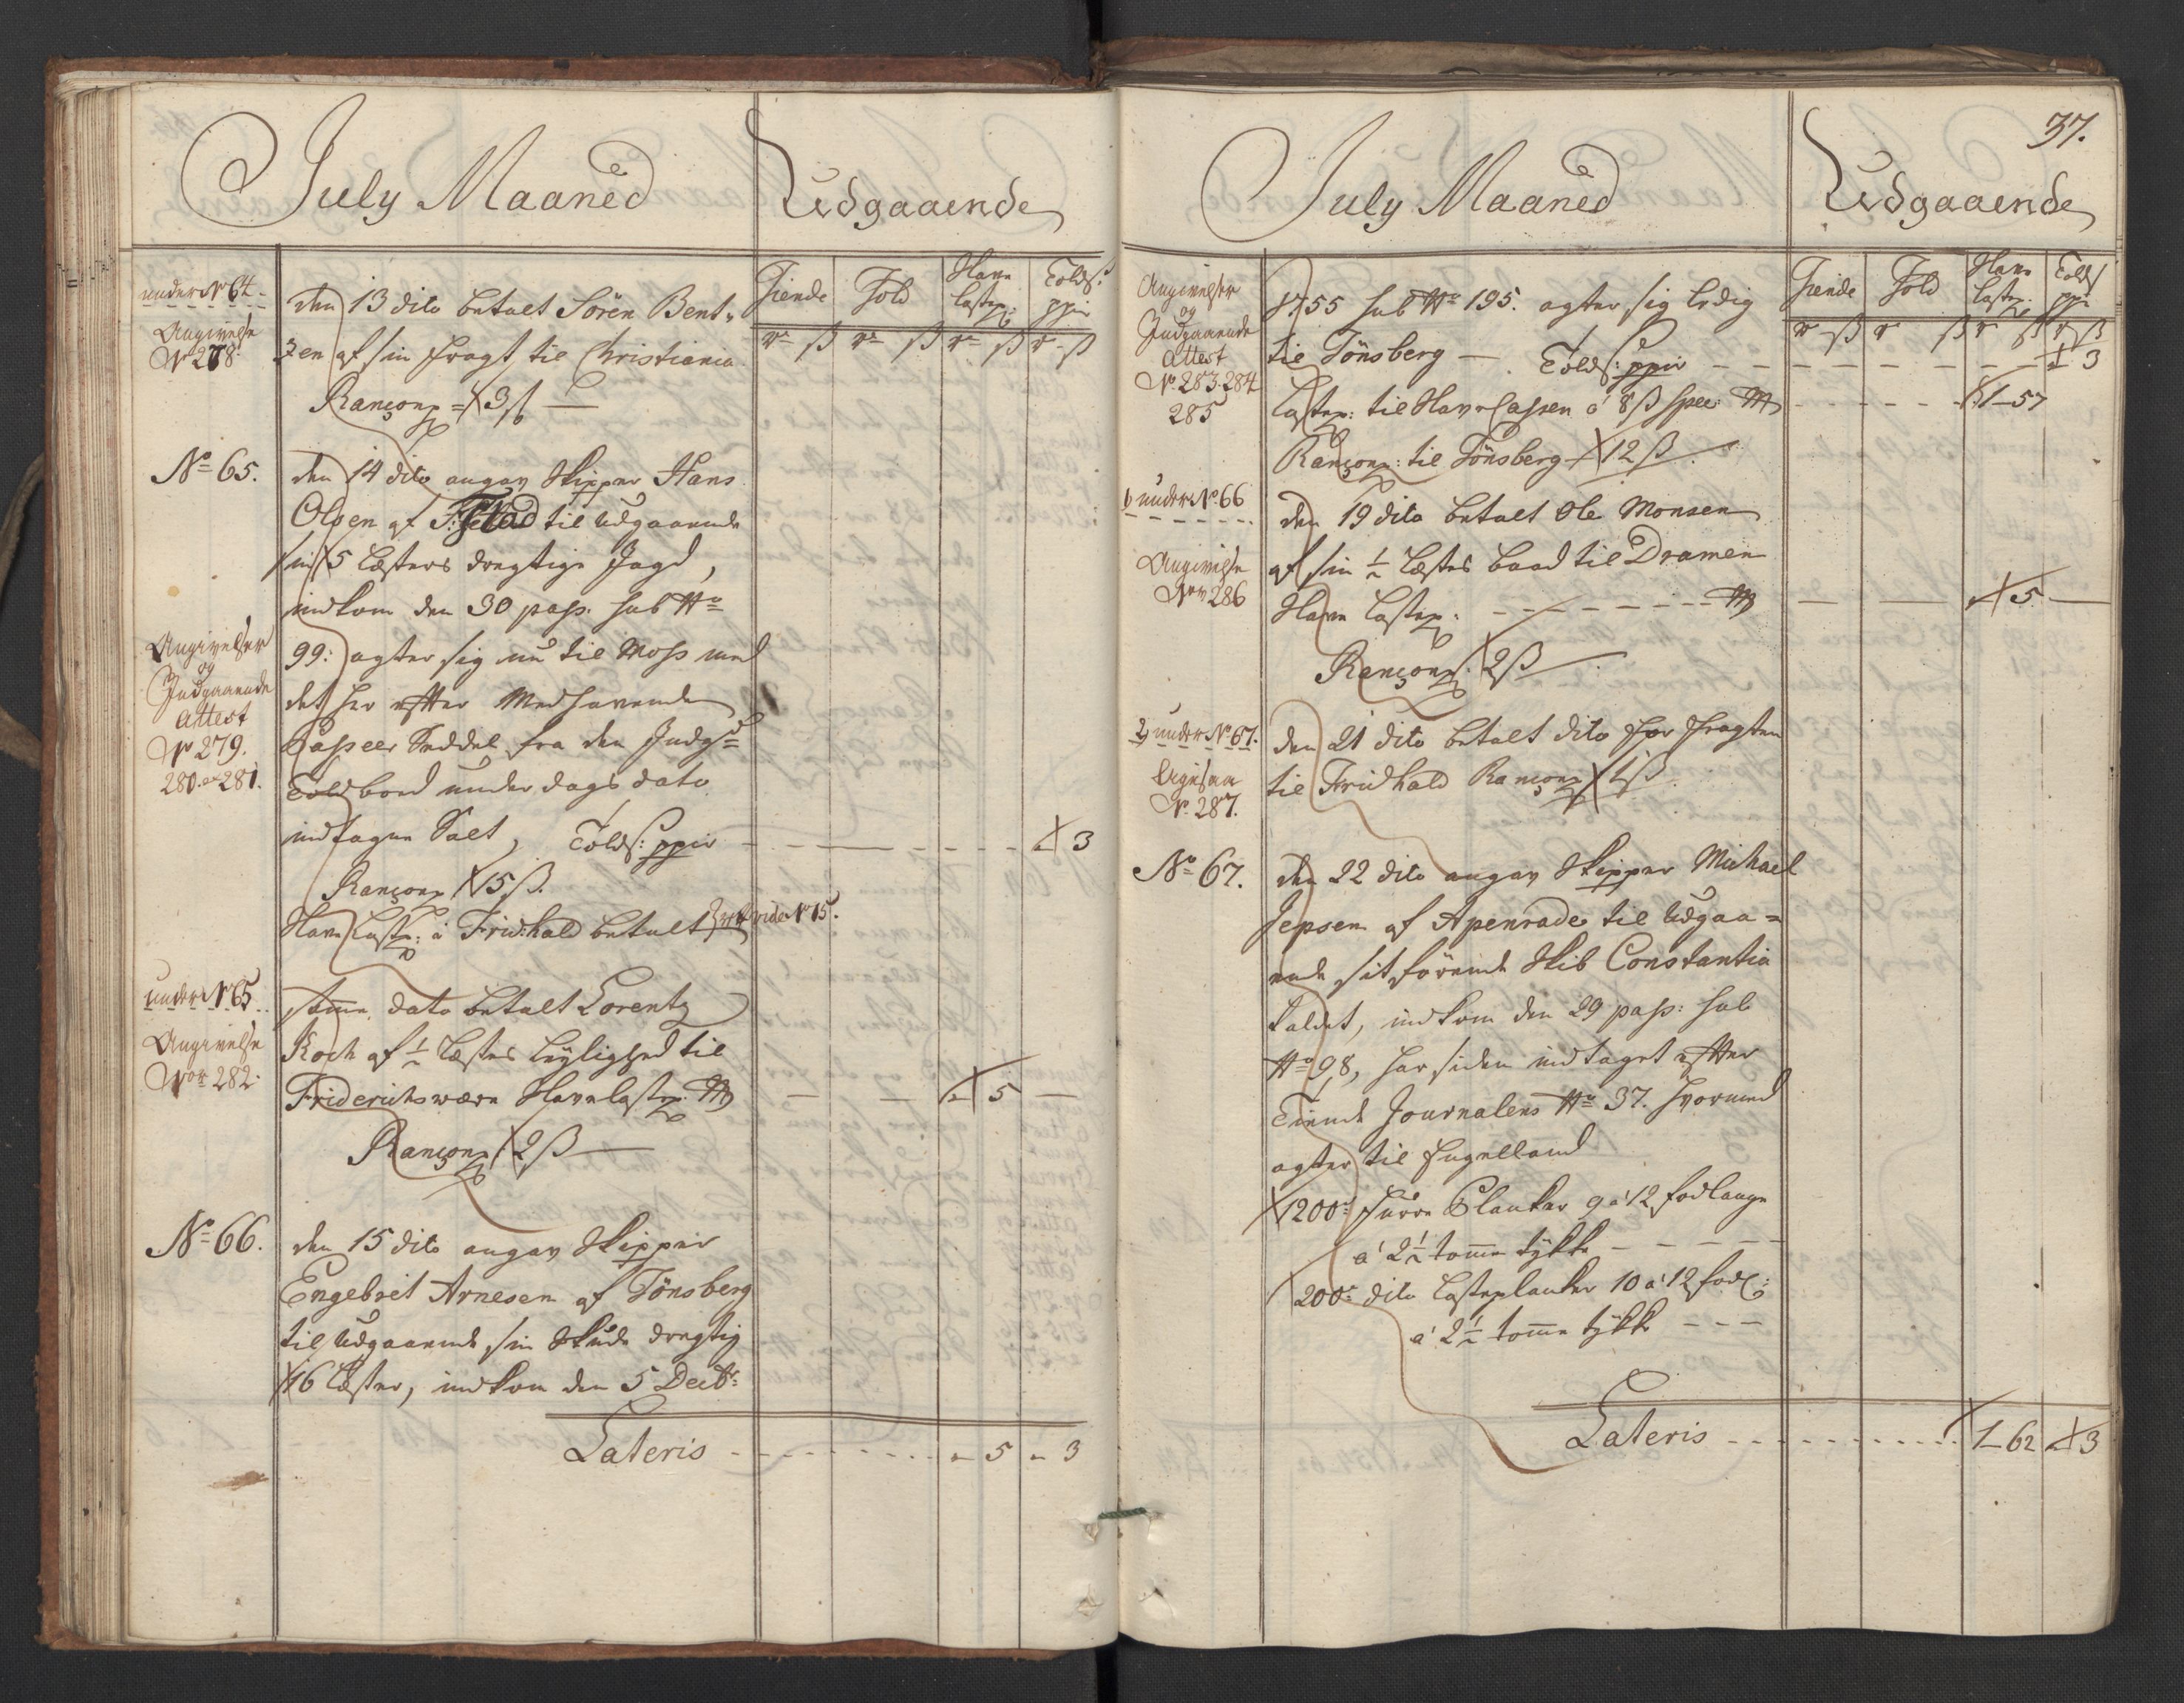 July Maaned
Udgaaende
Tiende
Told
Havne
Lastep:
Tolds:
ppir
rd ß rd ß rd ß rd ß
under No 64.
Angivelse
No 278.
den 13 dito betalt Sören Bent„
zen af sin fragt til Christiania
Ranconp = 3 ß
No 65.
den 14 dito angav Skipper Hans
Olsen af F:Stad til Udgaaende
sin 5 Læsters drægtige Jagd,
indkom den 30 pass. sub No
Angivelser
og
Indgaaende
Attest
No 279.
280. et 281.
99: agter sig nu til Moss med
det her efter Medhavende
Passeer Seddel fra den Indgde
Toldbod under dags dato
indtagne Salt, Tolds: ppir - - - 3
Ranconp 15 ß.
Havne Lastp: á Fridhald betalt No 15.
under No 65
Angivelse
Nor 282.
samme dato betalt Lorentz
Koch af ½ Læsters leylighed til
Friderichsværn Havnelastp: - - 5 -
Ranconp 2 ß
No 66.
den 15 dito angav Skipper
Engebret Arnesen af Tönsberg
til Udgaaende sin Skude drægtig
16 Læster, indkom den 5 Decbr:
Lateris - - - - „ 5 „ 3
37.
July Maaned
Udgaaende
Tiende
Told
Havne
Lastep:
Tolds:
ppir
r ß r ß r ß r ß
Angivelser
og
Indgaaende
Attest
No 283. 284
285
1755 sub No 195. agter sig ledig
til Tönsberg - Tolds: ppir - - - 3
Lastep: til HavneCassen á 8 ß spec: - - - 1-57
Ranconp: til Tönsberg 12 ß
1 under No 66
Angivelse
Nor 286
den 19 dito betalt Ole Monsen
af sin ½ Læsters baad til Dramen
Havne Lastep: - - - - 5 -
Ranconp: 2 ß
2 under No 67.
ligesaa
No 287.
den 21 dito betalt dito for fragten
til Fridhald Ranconp 1 ß
No 67.
den 22 dito angav Skipper Michael
Jepsen af Apenrade til Udgaa=
ende sit förende Skib Constantia
kaldet, indkom den 29 pass: sub
No 98, har siden indtaget efter
Tiende Journalens No 37. hvormed
agter til Engelland
1200: furre Planker 9 a 12 fod lange
á 2½ tomme tykke - - - - -
200: dito Lasteplanker 10 a 12 fod l:
á 2½ tomme tykke - - -
Lateris - - - - 1-62 „ 3